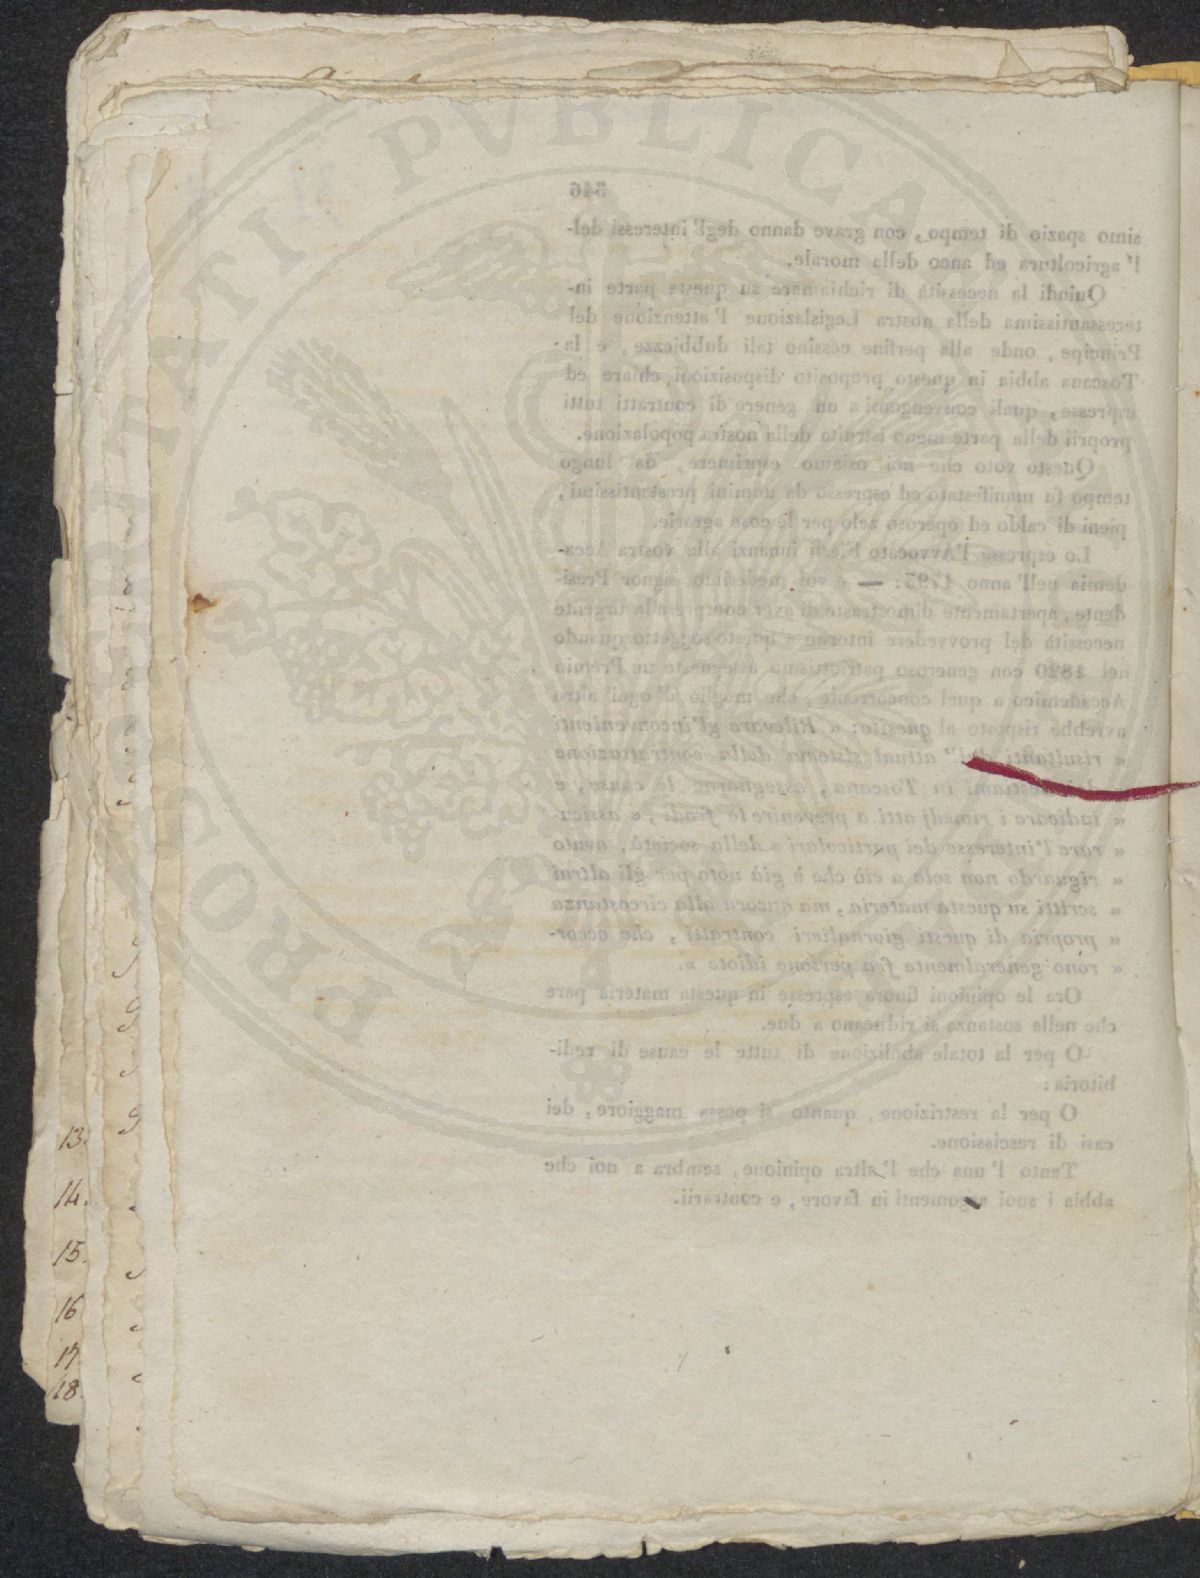 PROSPERITATI PVBLICAE
346
simo spazio di tempo, con grave danno degl'interessi del-
l'agricoltura ed anco della morale.
Quindi la necessità di richiamare su questa parte in-
teressantissima della nostra Legislazione l'attenzione del
Principe, onde alla perfine cessino tali dubbiezze, e la
Toscana abbia in questo proposito disposizioni chiare ed
espresse, quali convengonsi a un genere di contratti tutti
proprii della parte meno istruita della nostra popolazione.
Questo voto che noi osiamo esprimere, da lungo
tempo fu manifestato ed espresso da uomini prestantissimi,
pieni di caldo ed operoso zelo per le cose agrarie.
Lo espresse l'Avvocato innanzi alla vostra Acca-
demia nell'anno 1793: — e voi medesimo signor Presi-
dente, apertamente dimostraste di aver compresa la urgente
necessità del provvedere intorno a questo soggetto quando
nel 1820 con generoso patriottismo assegnaste un Premio
Accademico a quel concorrente, che meglio d'ogni altro
avrebbe risposto al quesito: « Rilevare gl'inconvenienti
« risultanti dell' attual sistema della contrattazione
« bestiami in Toscana, assegnarne le cause, e
« indicare i rimedj atti a prevenire le frodi, e assicu-
« rare l'interesse dei particolari e della società, avuto
« riguardo non solo a ciò che è già noto per gli altrui
« scritti su questa materia, ma ancora alla circostanza
« propria di questi giornalieri contratti, che occor-
« rono generalmente fra persone idiote ».
Ora le opinioni finora espresse in questa materia pare
che nella sostanza si riducano a due.
O per la totale abolizione di tutte le cause di redi-
bitoria:
O per la restrizione, quanto si possa maggiore, dei
casi di rescissione.
Tanto l'una che l'altra opinione, sembra a noi che
abbia i suoi argomenti in favore, e contrarii.
13.
14.
15.
16
17
18.